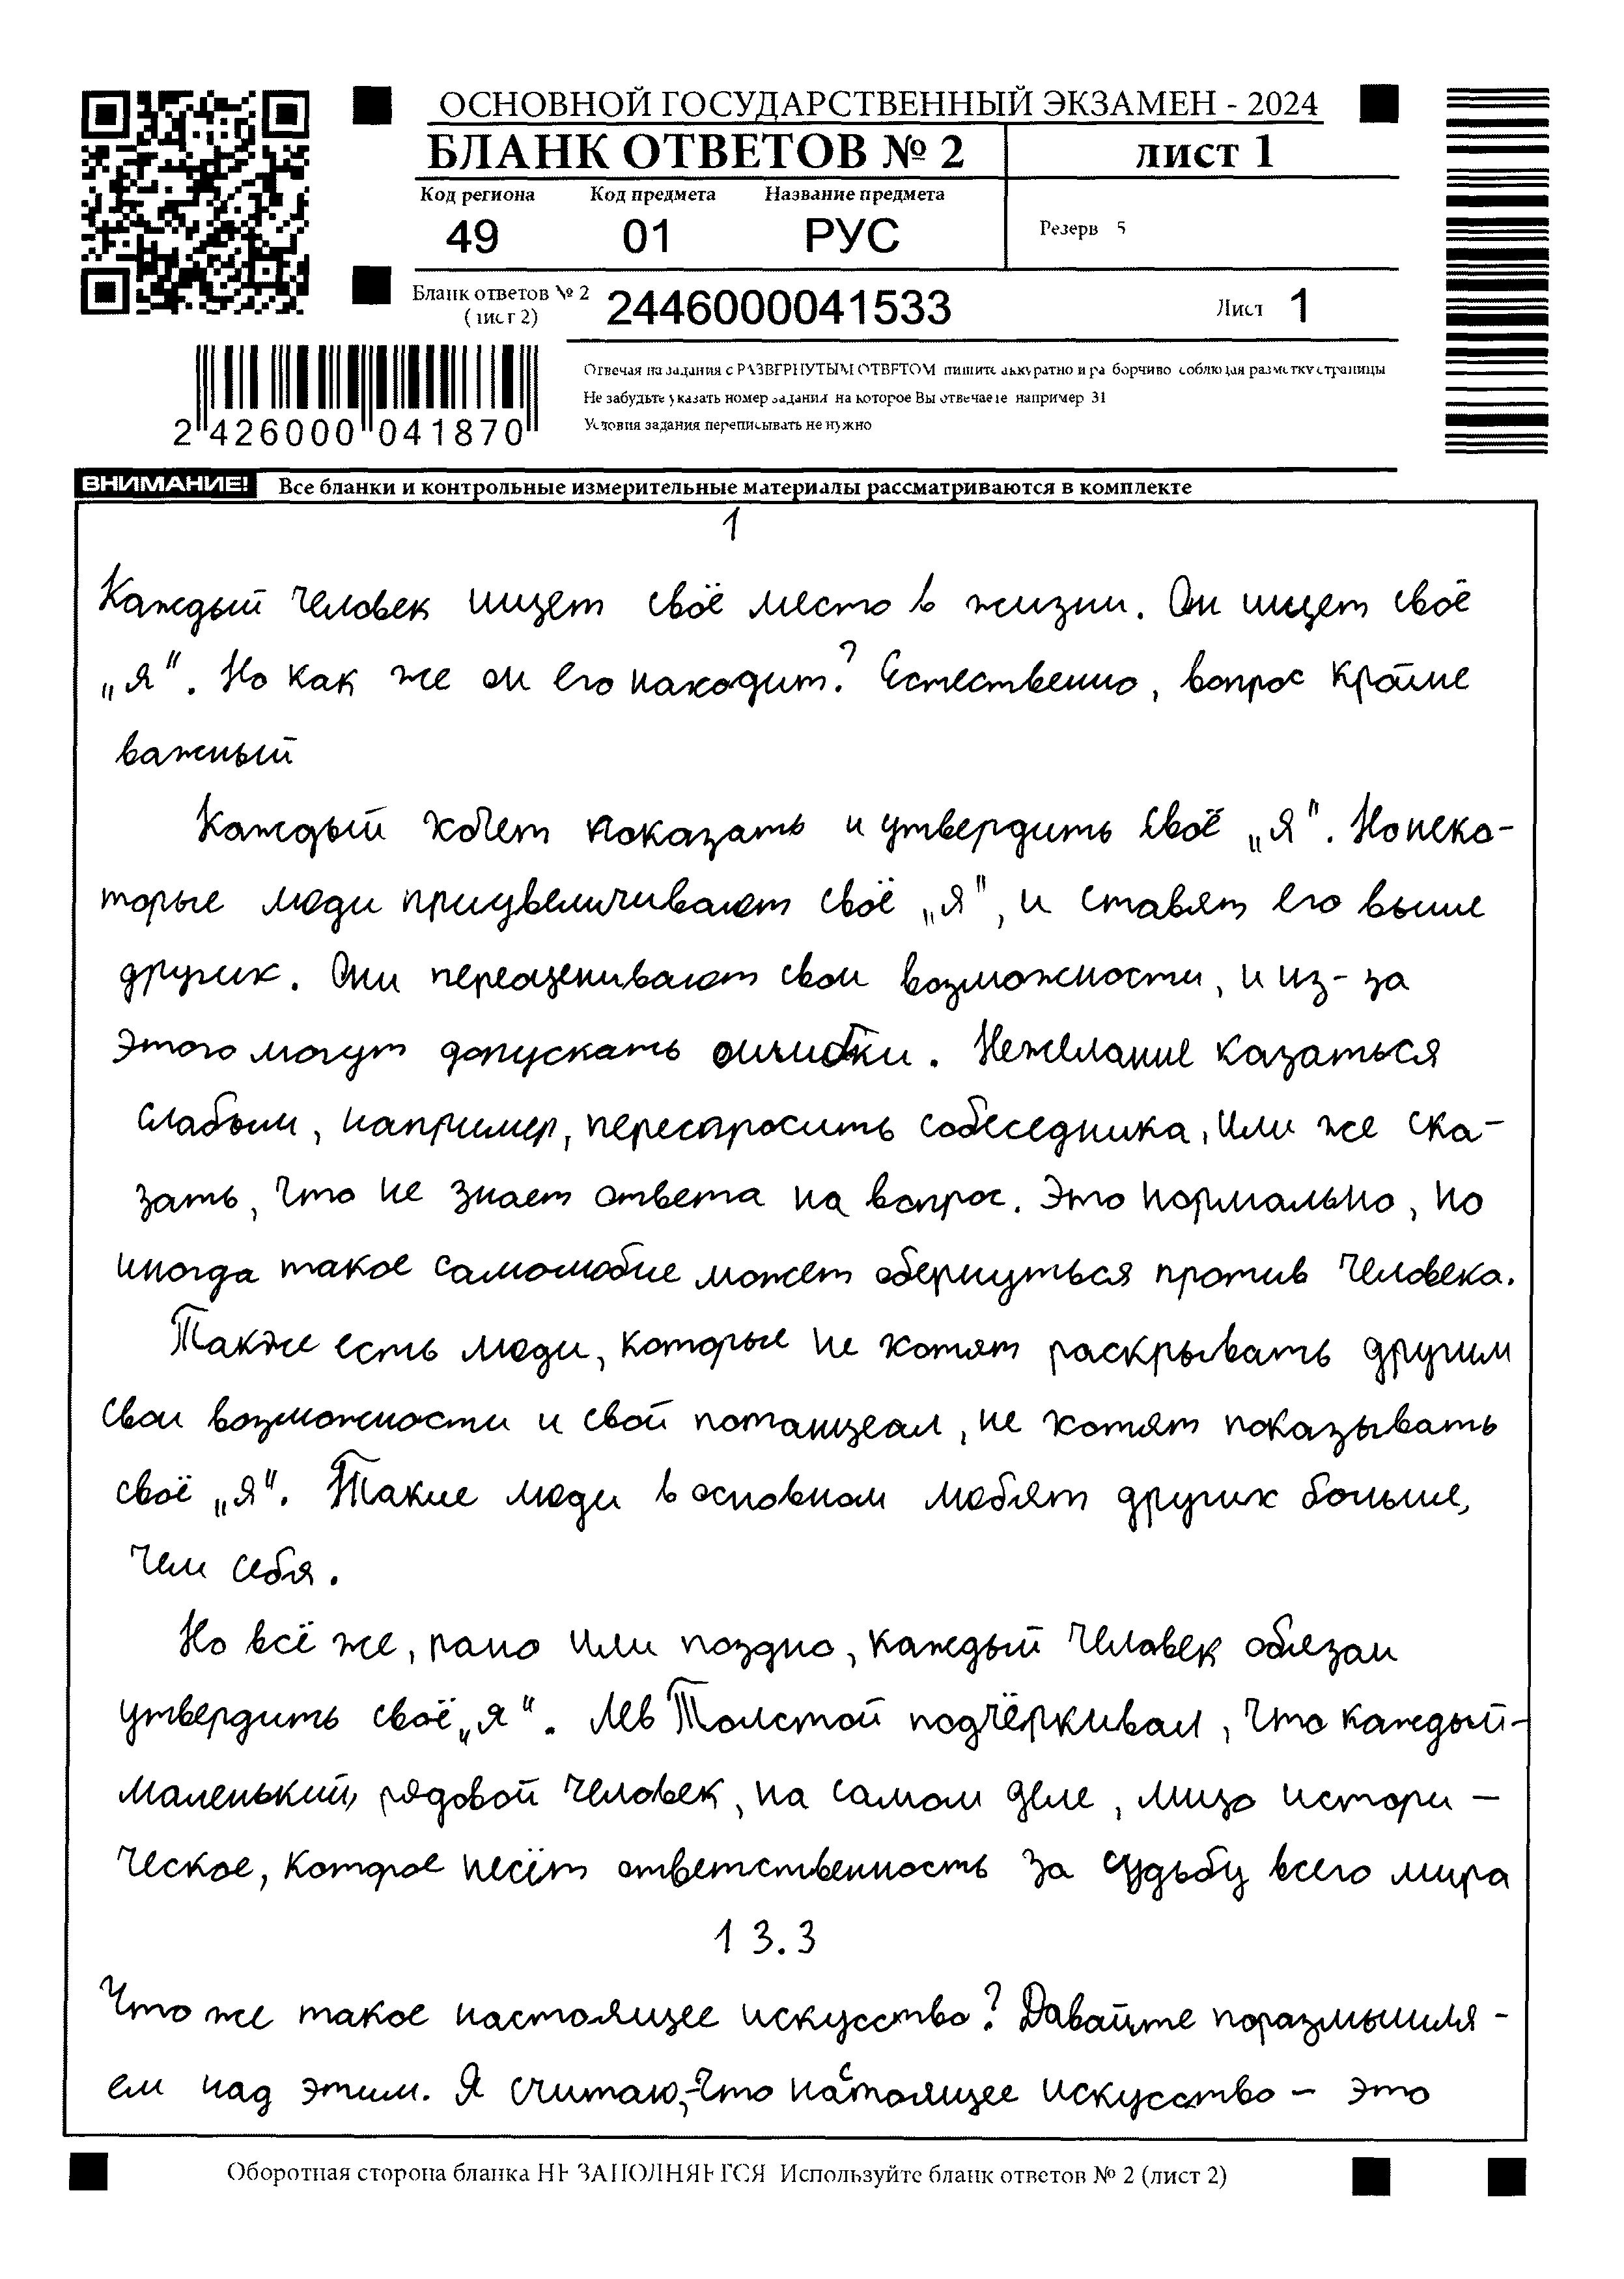 ОСНОВНОЙ ГОСУДАРСТВЕННЫЙ ЭКЗАМЕН - 2024
БЛАНК ОТВЕТОВ № 2
лист 1
Код региона Код предмета Название предмета
49 01 РУС
Резерв 5
Бланк ответов № 2
(лист 2)
2446000041533
Лист 1
2 426000 041870
Отвечая на задания с РАЗВЕРНУТЫМ ОТВЕТОМ пишите аккуратно и разборчиво соблюдая разметку страницы
Не забудьте указать номер задания на которое Вы отвечаете например 31
Условия задания переписывать не нужно
ВНИМАНИЕ! Все бланки и контрольные измерительные материалы рассматриваются в комплекте
1
Каждый человек ищет своё место в жизни. Он ищет своё
„я“. Но как же он его находит? Естественно, вопрос крайне
важный
Каждый хочет показать и утвердить своё „я“. Но неко-
торые люди приувеличивают своё „я“, и ставят его выше
других. Они переоценивают свои возможности, и из-за
этого могут допускать ошибки. Нежелание казаться
слабым, например, переспросить собеседника, или же ска-
зать, что не знает ответа на вопрос. Это нормально, но
иногда такое самолюбие может обернуться против человека.
Также есть люди, которые не хотят раскрывать другим
свои возможности и свой потанцеал, не хотят показывать
своё „я“. Такие люди в основном любят других больше,
чем себя.
Но всё же, рано или поздно, каждый человек обязан
утвердить своё „я“. Лев Толстой подчёркивал, что каждый-
маленький, рядовой человек, на самом деле, лицо истори-
ческое, которое несёт ответственность за судьбу всего мира
13.3
Что же такое настоящее искусство? Давайте поразмышля-
ем над этим. Я считаю, что настоящее искусство - это
Оборотная сторона бланка НЕ ЗАПОЛНЯЕТСЯ Используйте бланк ответов № 2 (лист 2)